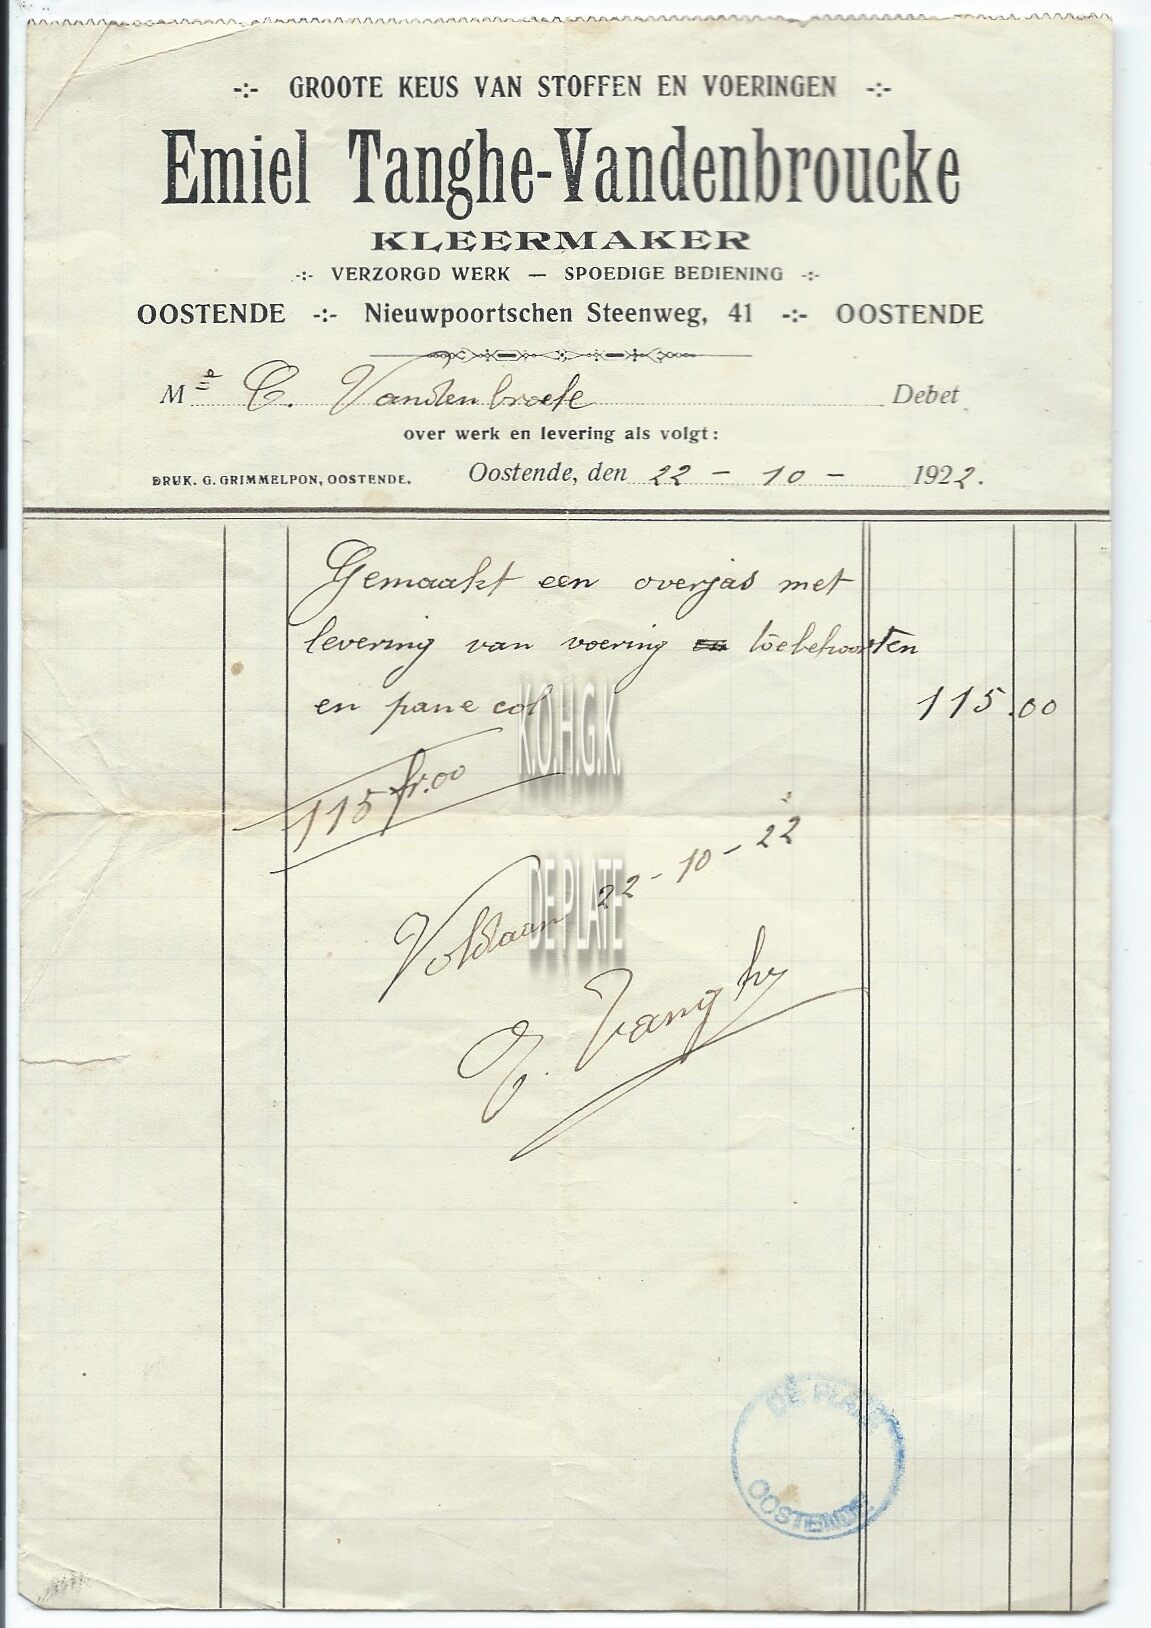 -:- GROOTE KEUS VAN STOFFEN EN VOERINGEN -:-
Emiel Tanghe-Vandenbroucke
KLEERMAKER
-:- VERZORGD WERK — SPOEDIGE BEDIENING -:-
OOSTENDE -:- Nieuwpoortschen Steenweg, 41 -:- OOSTENDE
M C. Vandenbroele Debet
over werk en levering als volgt:
DRUK. G. GRIMMELPON, OOSTENDE. Oostende, den 22 - 10 - 1922.
Gemaakt een overjas met
levering van voering en toebehoorten
en pane col 115.00
K.O.H.G.K.
115 fr.00
Voldaan 22-10-22
DE PLATE
E. Tanghe
DE PLATE
OOSTENDE